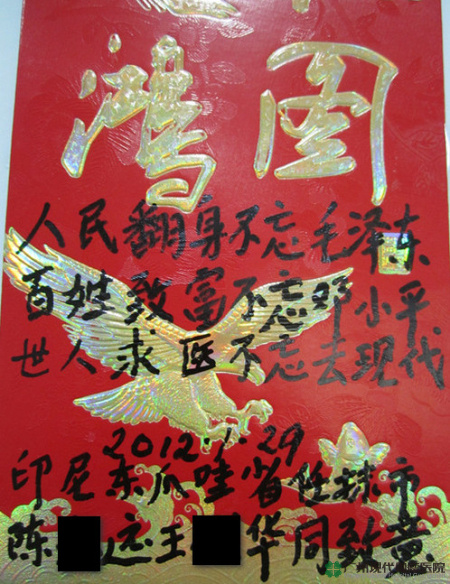 鸿图
人民翻身不忘毛泽东
百姓致富不忘邓小平
世人求医不忘去现代
2012.1.29
印尼东爪哇省任抹市
陈 王 华同致意
广州现代肿瘤医院